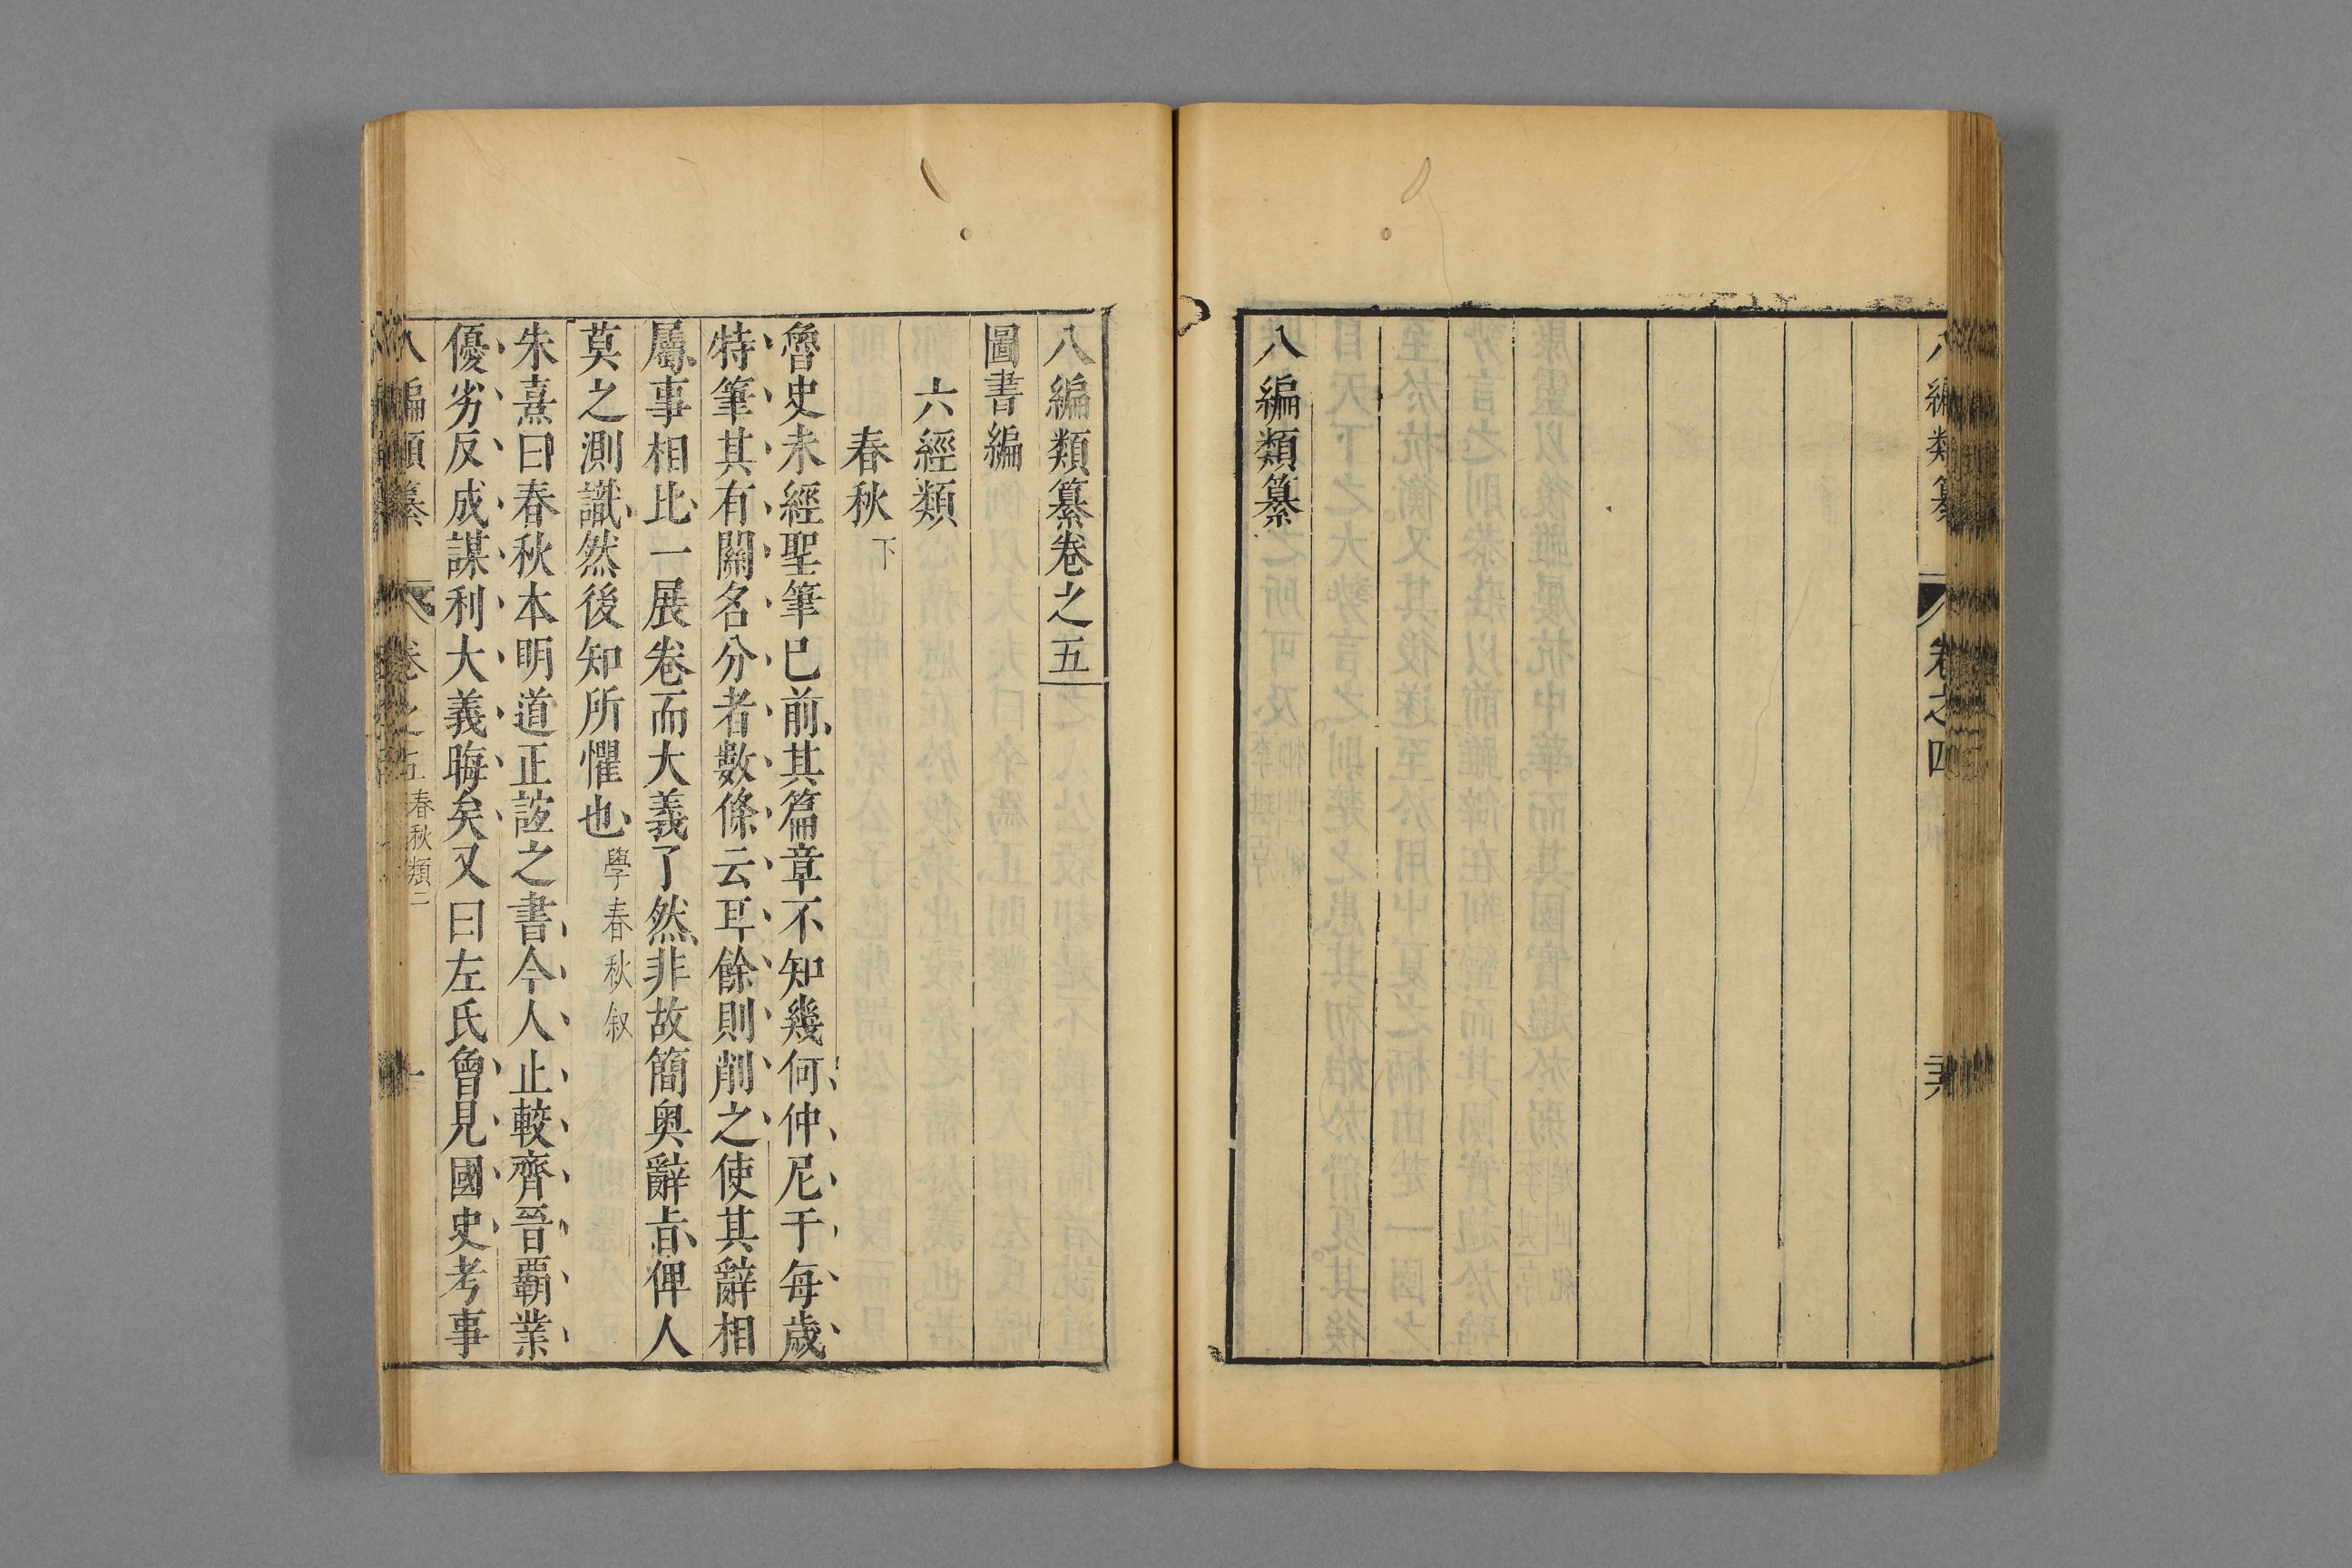 八編類纂
卷之四
八編類纂
八編類纂卷之五
圖書編
六經類
春秋下
魯史未經聖筆已前其篇章不知幾何仲尼于每歲
特筆其有關名分者數條云耳餘則削之使其辭相
屬事相比一展卷而大義了然非故簡奧辭旨俾人
莫之測識然後知所懼也學春秋叙
朱熹曰春秋本明道正誼之書今人止較齊晉覇業
優劣反成謀利大義晦矣又曰左氏曾見國史考事
八編類纂 卷之五 春秋類二 一